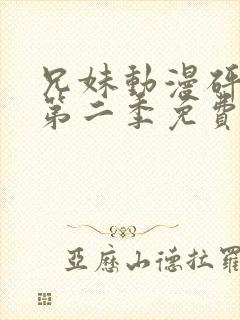 兄妹動漫研
第二季免費
亞歷山德拉羅